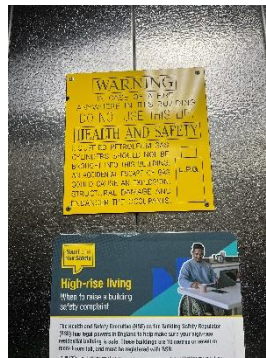 WARNING
IN CASE OF A FIRE
ANYWHERE IN THIS BUILDING
DO NOT USE THIS LIFT
HEALTH AND SAFETY
LIQUEFIED PETROLEUM GAS
CYLINDERS SHOULD NOT BE
BROUGHT INTO THIS BUILDING.
AN ACCIDENTAL ESCAPE OF GAS
COULD CAUSE AN EXPLOSION,
STRUCTURAL DAMAGE AND
ENDANGER THE OCCUPANTS.
L.P.G.
Your
Your Safety
High-rise living
When to raise a building
safety complaint
The Health and Safety Executive (HSE) as the Building Safety Regulator
(BSR) has legal powers in England to help make sure your high-rise
residential building is safe. These buildings are 18 metres or seven or
more floors tall, and must be registered with BSR.